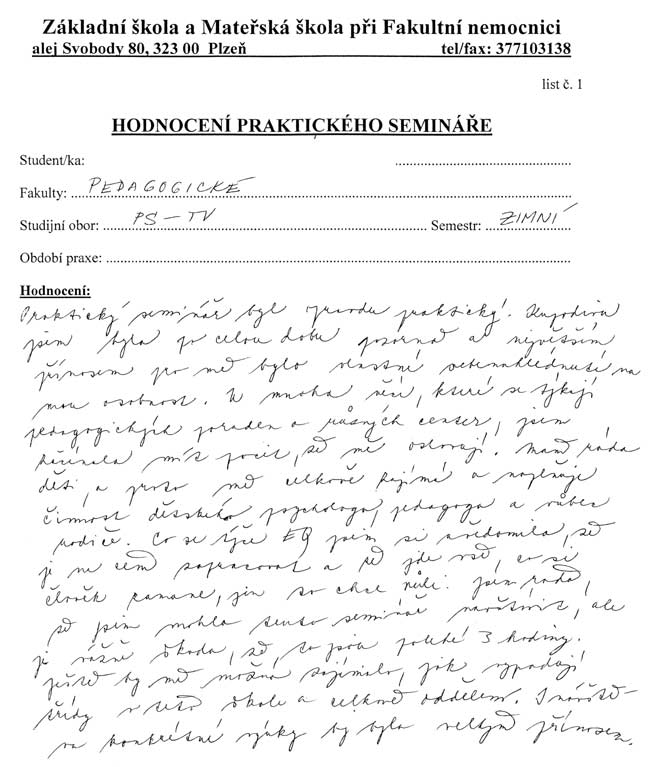 Základní škola a Mateřská škola při Fakultní nemocnici
alej Svobody 80, 323 00 Plzeň tel/fax: 377103138
list č. 1
HODNOCENÍ PRAKTICKÉHO SEMINÁŘE
Student/ka: ................................................
Fakulty: PEDAGOGICKÉ
Studijní obor: PS – TV Semestr: ZIMNÍ
Období praxe: ................................................
Hodnocení:
Praktický seminář byl opravdu praktický!
jsem byla po celou dobu pozorná a největším
přínosem pro mě bylo vlastně na
mou osobnost. U mnoha věcí, které se týkají
pedagogických poraden a různých center, jsem
míť pocit, že mě oslovají. Mám ráda
děti, a proto mě celkově zajímá a naplňuje
činnost dětského psychologa, pedagoga a vůbec
rodiče. Co se týče EQ jsem si uvědomila, že
je na čem zapracovat a že jde vše, co si
člověk zamane, jen to chce vůli. Jsem ráda,
že jsem mohla tento seminář navštívit, ale
je vážně škoda, že to jsou pouhé 3 hodiny.
Ještě by mě možná zajímalo, jak vypadají
třídy v této škole a celkově oddělení. I návště-
va konkrétní výuky by byla velkým přínosem.